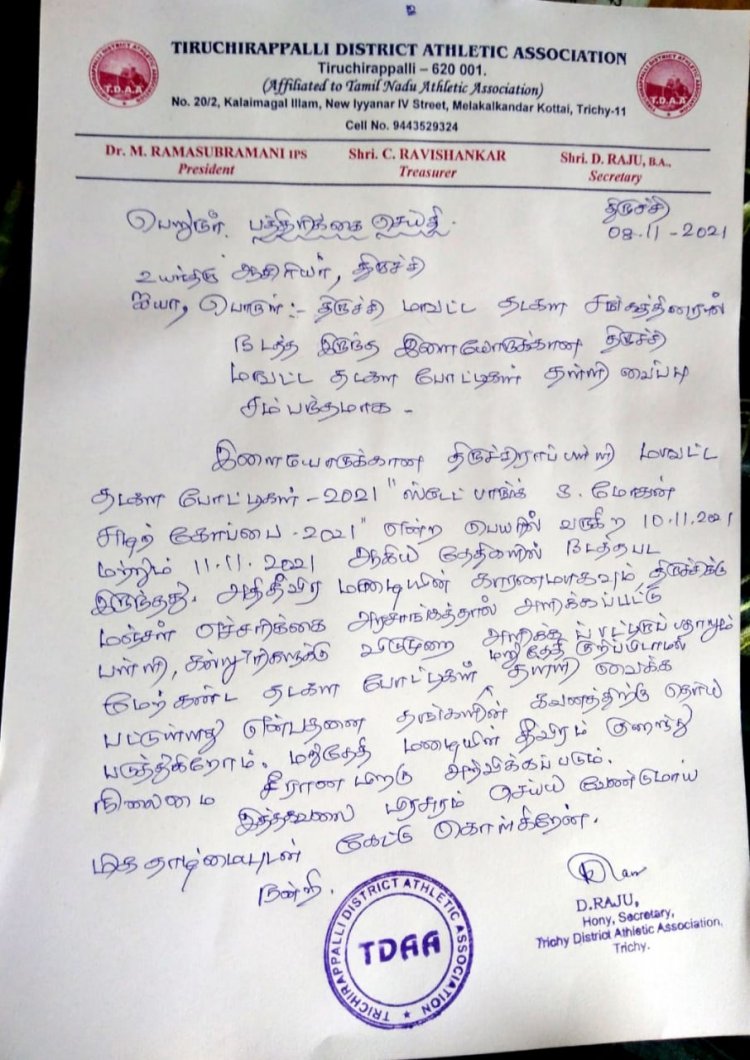 TIRUCHIRAPPALLI DISTRICT ATHLETIC ASSOCIATION
Tiruchirappalli – 620 001.
(Affiliated to Tamil Nadu Athletic Association)
No. 20/2, Kalaimagal Illam, New Iyyanar IV Street, Melakalkandar Kottai, Trichy-11
Cell No. 9443529324
TIRUCHIRAPPALLI DISTRICT ATHLETIC ASSOCIATION
T.D.A.A
T.D.A.A
Dr. M. RAMASUBRAMANI IPS Shri. C. RAVISHANKAR Shri. D. RAJU, B.A.,
President Treasurer Secretary
பெறுநர். பத்திரிக்கை செய்தி. திருச்சி
08.11-2021
உயர்திரு ஆசிரியர், திருச்சி
ஐயா, பொருள்:- திருச்சி மாவட்ட தடகள சங்கத்தினரால்
நடத்த இருந்த இளையோருக்கான திருச்சி
மாவட்ட தடகள போட்டிகள் தள்ளி வைப்பு
சம்பந்தமாக -
இளையோருக்கான திருச்சிராப்பள்ளி மாவட்ட
தடகள போட்டிகள் - 2021 "ஸ்டேட் பாங்க் மோகன்
கோப்பை - 2021" என்ற பெயரில் வருகிற 10.11.2021
மற்றும் 11.11.2021 ஆகிய தேதிகளில் நடத்தபட
இருந்தது. அதிதீவிர மழையின் காரணமாகவும் திருச்சிக்கு
மஞ்சள் எச்சரிக்கை அரசாங்கத்தால் அளிக்கப்பட்டு
பள்ளி, கல்லூரிகளுக்கு விடுமுறை அளிக்கப்பட்டிருப்பதாலும்
மறு தேதி குறிப்பிடாமல்
மேற்கண்ட தடகள போட்டிகள் தள்ளி வைக்க
பட்டுள்ளது என்பதனை தங்களின் கவனத்திற்கு தெரிய
படுத்திகிறோம். மறுதேதி மழையின் தீவிரம் குறைந்து
நிலைமை சீரான பிறகு அறிவிக்கப்படும்.
இத்தகவலை பிரசுரம் செய்ய வேண்டுமாய்
மிக தாழ்மையுடன் கேட்டு கொள்கிறேன்.
நன்றி.
D.RAJU,
Hony, Secretary,
Trichy District Athletic Association,
Trichy.
TRICHIRAPPALLI DISTRICT ATHLETIC ASSOCIATION
TDAA